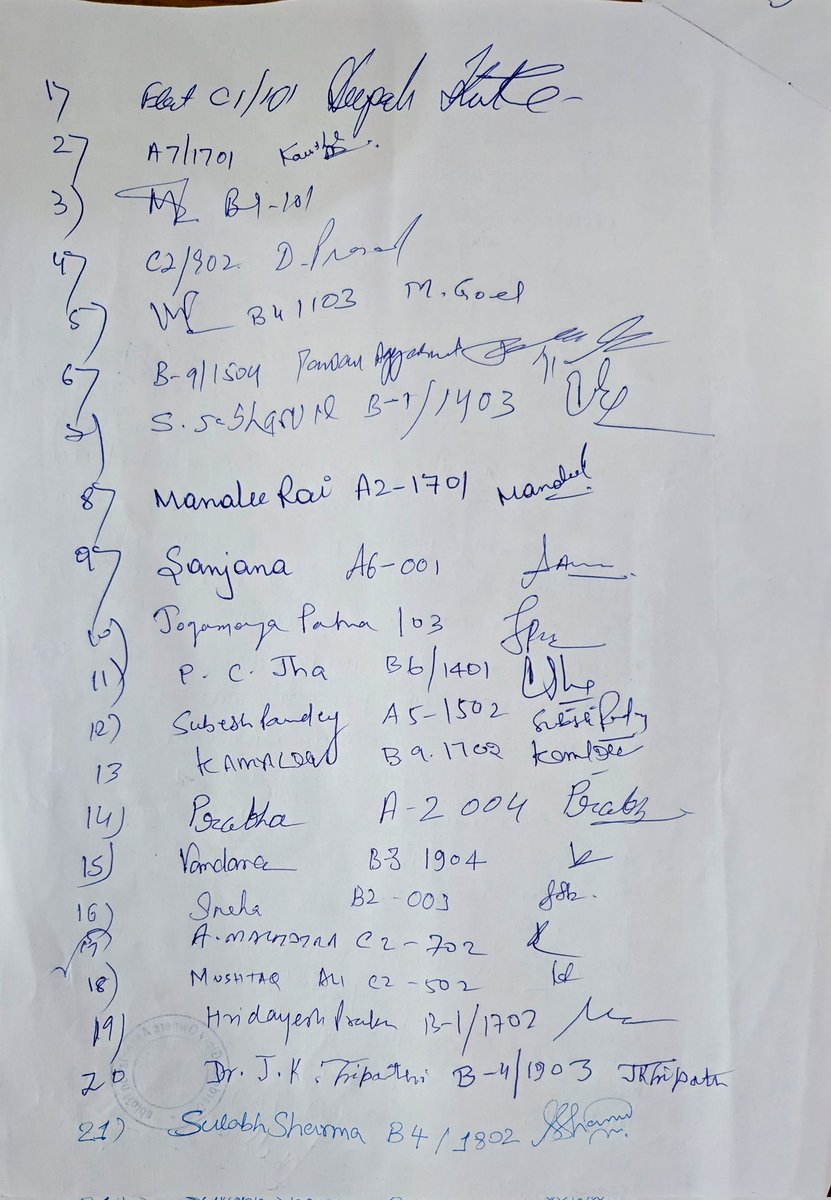 1) Flat C1/101 Deepak
2) A7/1701 Kaushik
3) B9-101
4) C2/902 D. Prasad
5) B4 1103 M. Goel
6) B-9/1504
S. S. SHARMA B-1/1403
8) Manalee Rai A2-1701 Manalee
9) Sanjana A6-001
10) Jogamaya Patra 103
11) P. C. Jha B6/1401
12) Subesh Pandey A5-1502
13 B9.1702
14) Prabha A-2 004 Prabh
15) Vandana B3 1904
16) Sneha B2-003
17) A. MALHOTRA C2-702
18) MUSHTAQ ALI C2-502
19) Hridayesh B-1/1702
20 Dr. J.K. Tripathi B-4/1903 JKTripathi
21) Sulabh Sharma B4/1802 Sharma